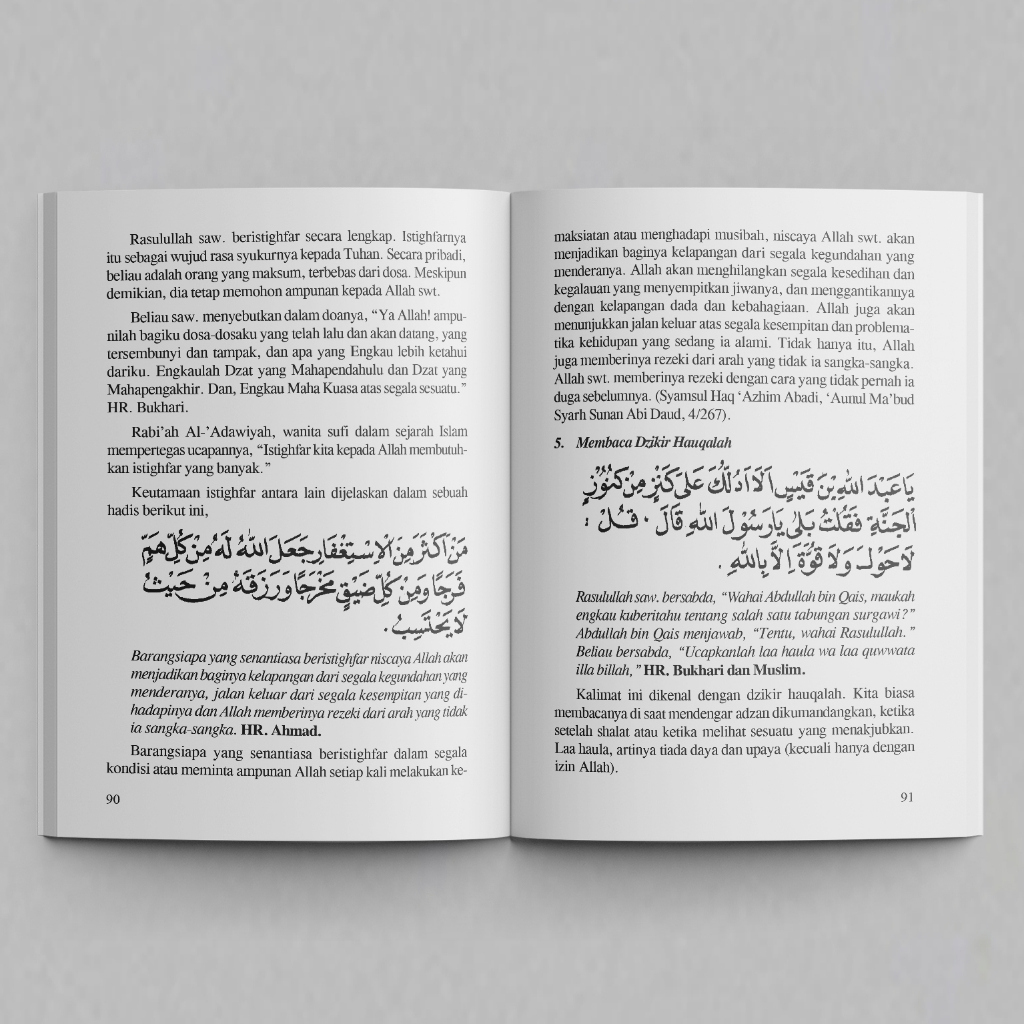 Rasulullah saw. beristighfar secara lengkap. Istighfarnya
itu sebagai wujud rasa syukurnya kepada Tuhan. Secara pribadi,
beliau adalah orang yang maksum, terbebas dari dosa. Meskipun
demikian, dia tetap memohon ampunan kepada Allah swt.
Beliau saw. menyebutkan dalam doanya, “Ya Allah! ampu-
nilah bagiku dosa-dosaku yang telah lalu dan akan datang, yang
tersembunyi dan tampak, dan apa yang Engkau lebih ketahui
dariku. Engkaulah Dzat yang Mahapendahulu dan Dzat yang
Mahapengakhir. Dan, Engkau Maha Kuasa atas segala sesuatu.”
HR. Bukhari.
Rabi’ah Al-’Adawiyah, wanita sufi dalam sejarah Islam
mempertegas ucapannya, “Istighfar kita kepada Allah membutuh-
kan istighfar yang banyak.”
Keutamaan istighfar antara lain dijelaskan dalam sebuah
hadis berikut ini,
مَنْ اَكْثَرَ مِنَ الْاِسْتِغْفَارِ جَعَلَ اللهُ لَهُ مِنْ كُلِّ هَمٍّ
فَرَجًا وَمِنْ كُلِّ ضَيْقٍ مَخْرَجًا وَرَزَقَهُ مِنْ حَيْثُ
لَا يَحْتَسِبُ.
Barangsiapa yang senantiasa beristighfar niscaya Allah akan
menjadikan baginya kelapangan dari segala kegundahan yang
menderanya, jalan keluar dari segala kesempitan yang di-
hadapinya dan Allah memberinya rezeki dari arah yang tidak
ia sangka-sangka. HR. Ahmad.
Barangsiapa yang senantiasa beristighfar dalam segala
kondisi atau meminta ampunan Allah setiap kali melakukan ke-
90
maksiatan atau menghadapi musibah, niscaya Allah swt. akan
menjadikan baginya kelapangan dari segala kegundahan yang
menderanya. Allah akan menghilangkan segala kesedihan dan
kegalauan yang menyempitkan jiwanya, dan menggantikannya
dengan kelapangan dada dan kebahagiaan. Allah juga akan
menunjukkan jalan keluar atas segala kesempitan dan problema-
tika kehidupan yang sedang ia alami. Tidak hanya itu, Allah
juga memberinya rezeki dari arah yang tidak ia sangka-sangka.
Allah swt. memberinya rezeki dengan cara yang tidak pernah ia
duga sebelumnya. (Syamsul Haq ‘Azhim Abadi, ‘Aunul Ma’bud
Syarh Sunan Abi Daud, 4/267).
5. Membaca Dzikir Hauqalah
يَاعَبْدَ اللهِ بْنَ قَيْسٍ اَلَا اَدُلُّكَ عَلَى كَنْزٍ مِنْ كُنُوْزِ
الْجَنَّةِ فَقُلْتُ بَلَى يَارَسُوْلَ اللهِ قَالَ . قُلْ :
لَاحَوْلَ وَلَا قُوَّةَ اِلَّا بِاللهِ .
Rasulullah saw. bersabda, “Wahai Abdullah bin Qais, maukah
engkau kuberitahu tentang salah satu tabungan surgawi?”
Abdullah bin Qais menjawab, “Tentu, wahai Rasulullah.”
Beliau bersabda, “Ucapkanlah laa haula wa laa quwwata
illa billah,” HR. Bukhari dan Muslim.
Kalimat ini dikenal dengan dzikir hauqalah. Kita biasa
membacanya di saat mendengar adzan dikumandangkan, ketika
setelah shalat atau ketika melihat sesuatu yang menakjubkan.
Laa haula, artinya tiada daya dan upaya (kecuali hanya dengan
izin Allah).
91